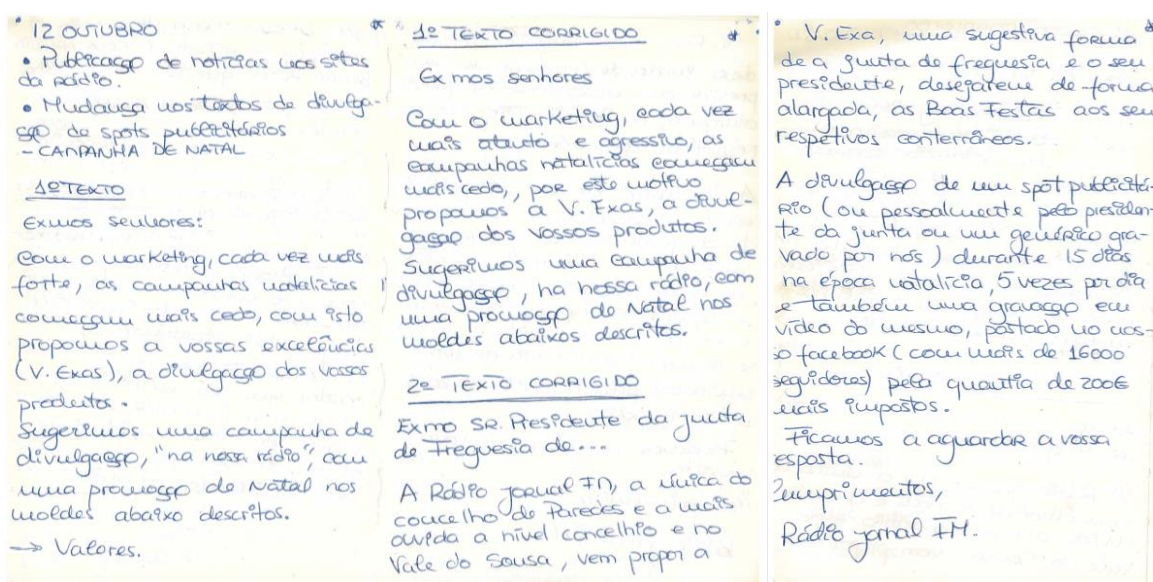 12 OUTUBRO
• Publicação de notícias nos sites
da rádio.
• Mudança nos textos de divulga-
ção de spots publicitários
- CAMPANHA DE NATAL
1º TEXTO
Exmos senhores:
Com o marketing, cada vez mais
forte, as campanhas natalícias
começam mais cedo, com isto
propomos a vossas excelências
(V. Exas), a divulgação dos vossos
produtos.
Sugerimos uma campanha de
divulgação, "na nossa rádio", com
uma promoção de Natal nos
moldes abaixo descritos.
→ Valores.
1º TEXTO CORRIGIDO
Ex mos senhores
Com o marketing, cada vez
mais atento e agressivo, as
campanhas natalícias começam
mais cedo, por este motivo
propomos a V. Exas, a divul-
gação dos vossos produtos.
Sugerimos uma campanha de
divulgação, na nossa rádio, com
uma promoção de Natal nos
moldes abaixos descritos.
2º TEXTO CORRIGIDO
Exmo SR. Presidente da junta
de Freguesia de...
A Rádio jornal FM, a única do
concelho de Paredes e a mais
ouvida a nível concelhio e no
Vale do Sousa, vem propor a
V. Exa, uma sugestiva forma
de a junta de freguesia e o seu
presidente, desejarem de forma
alargada, as Boas Festas aos seu
respetivos conterrâneos.
A divulgação de um spot publicitá-
rio (ou pessoalmente pelo presiden-
te da junta ou um genérico gra-
vado por nós) durante 15 dias
na época natalícia, 5 vezes por dia
e também uma gravação em
vídeo do mesmo, postado no nos-
so facebook (com mais de 16000
seguidores) pela quantia de 200€
mais impostos.
Ficamos a aguardar a vossa
esposta.
Cumprimentos,
Rádio jornal FM.